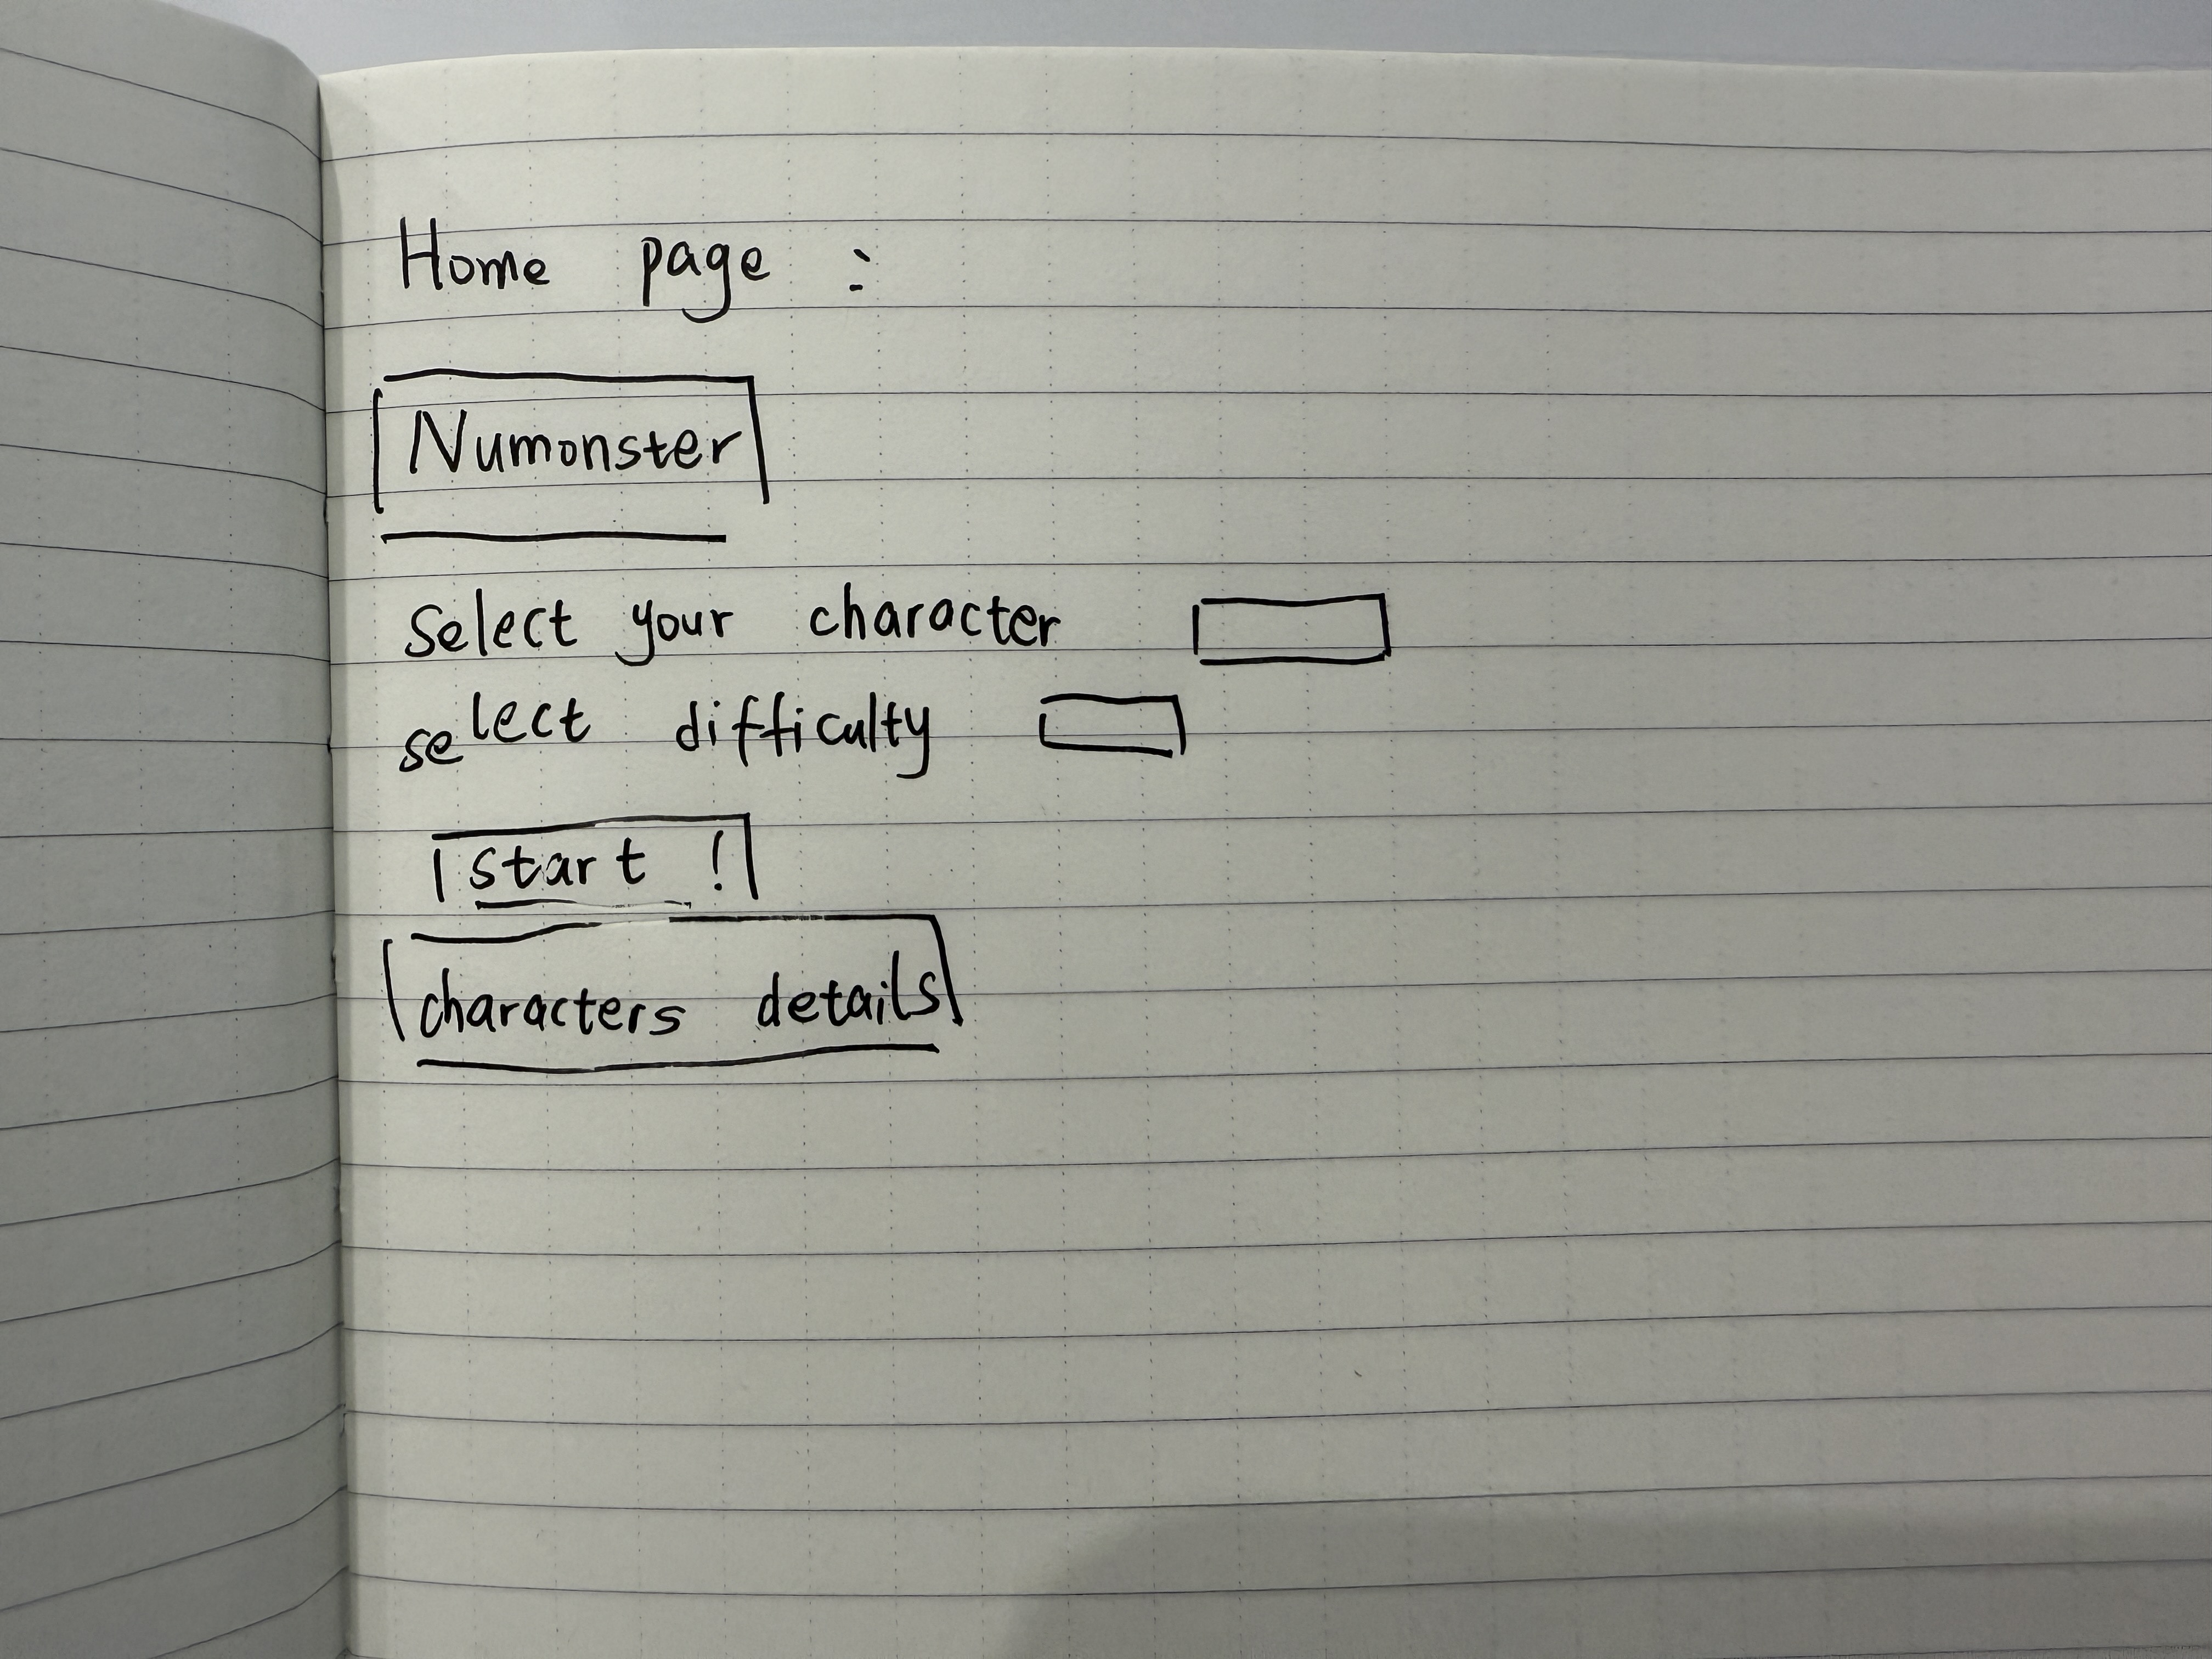 Home page :
Numonster
Select your character
select difficulty
start !
characters details